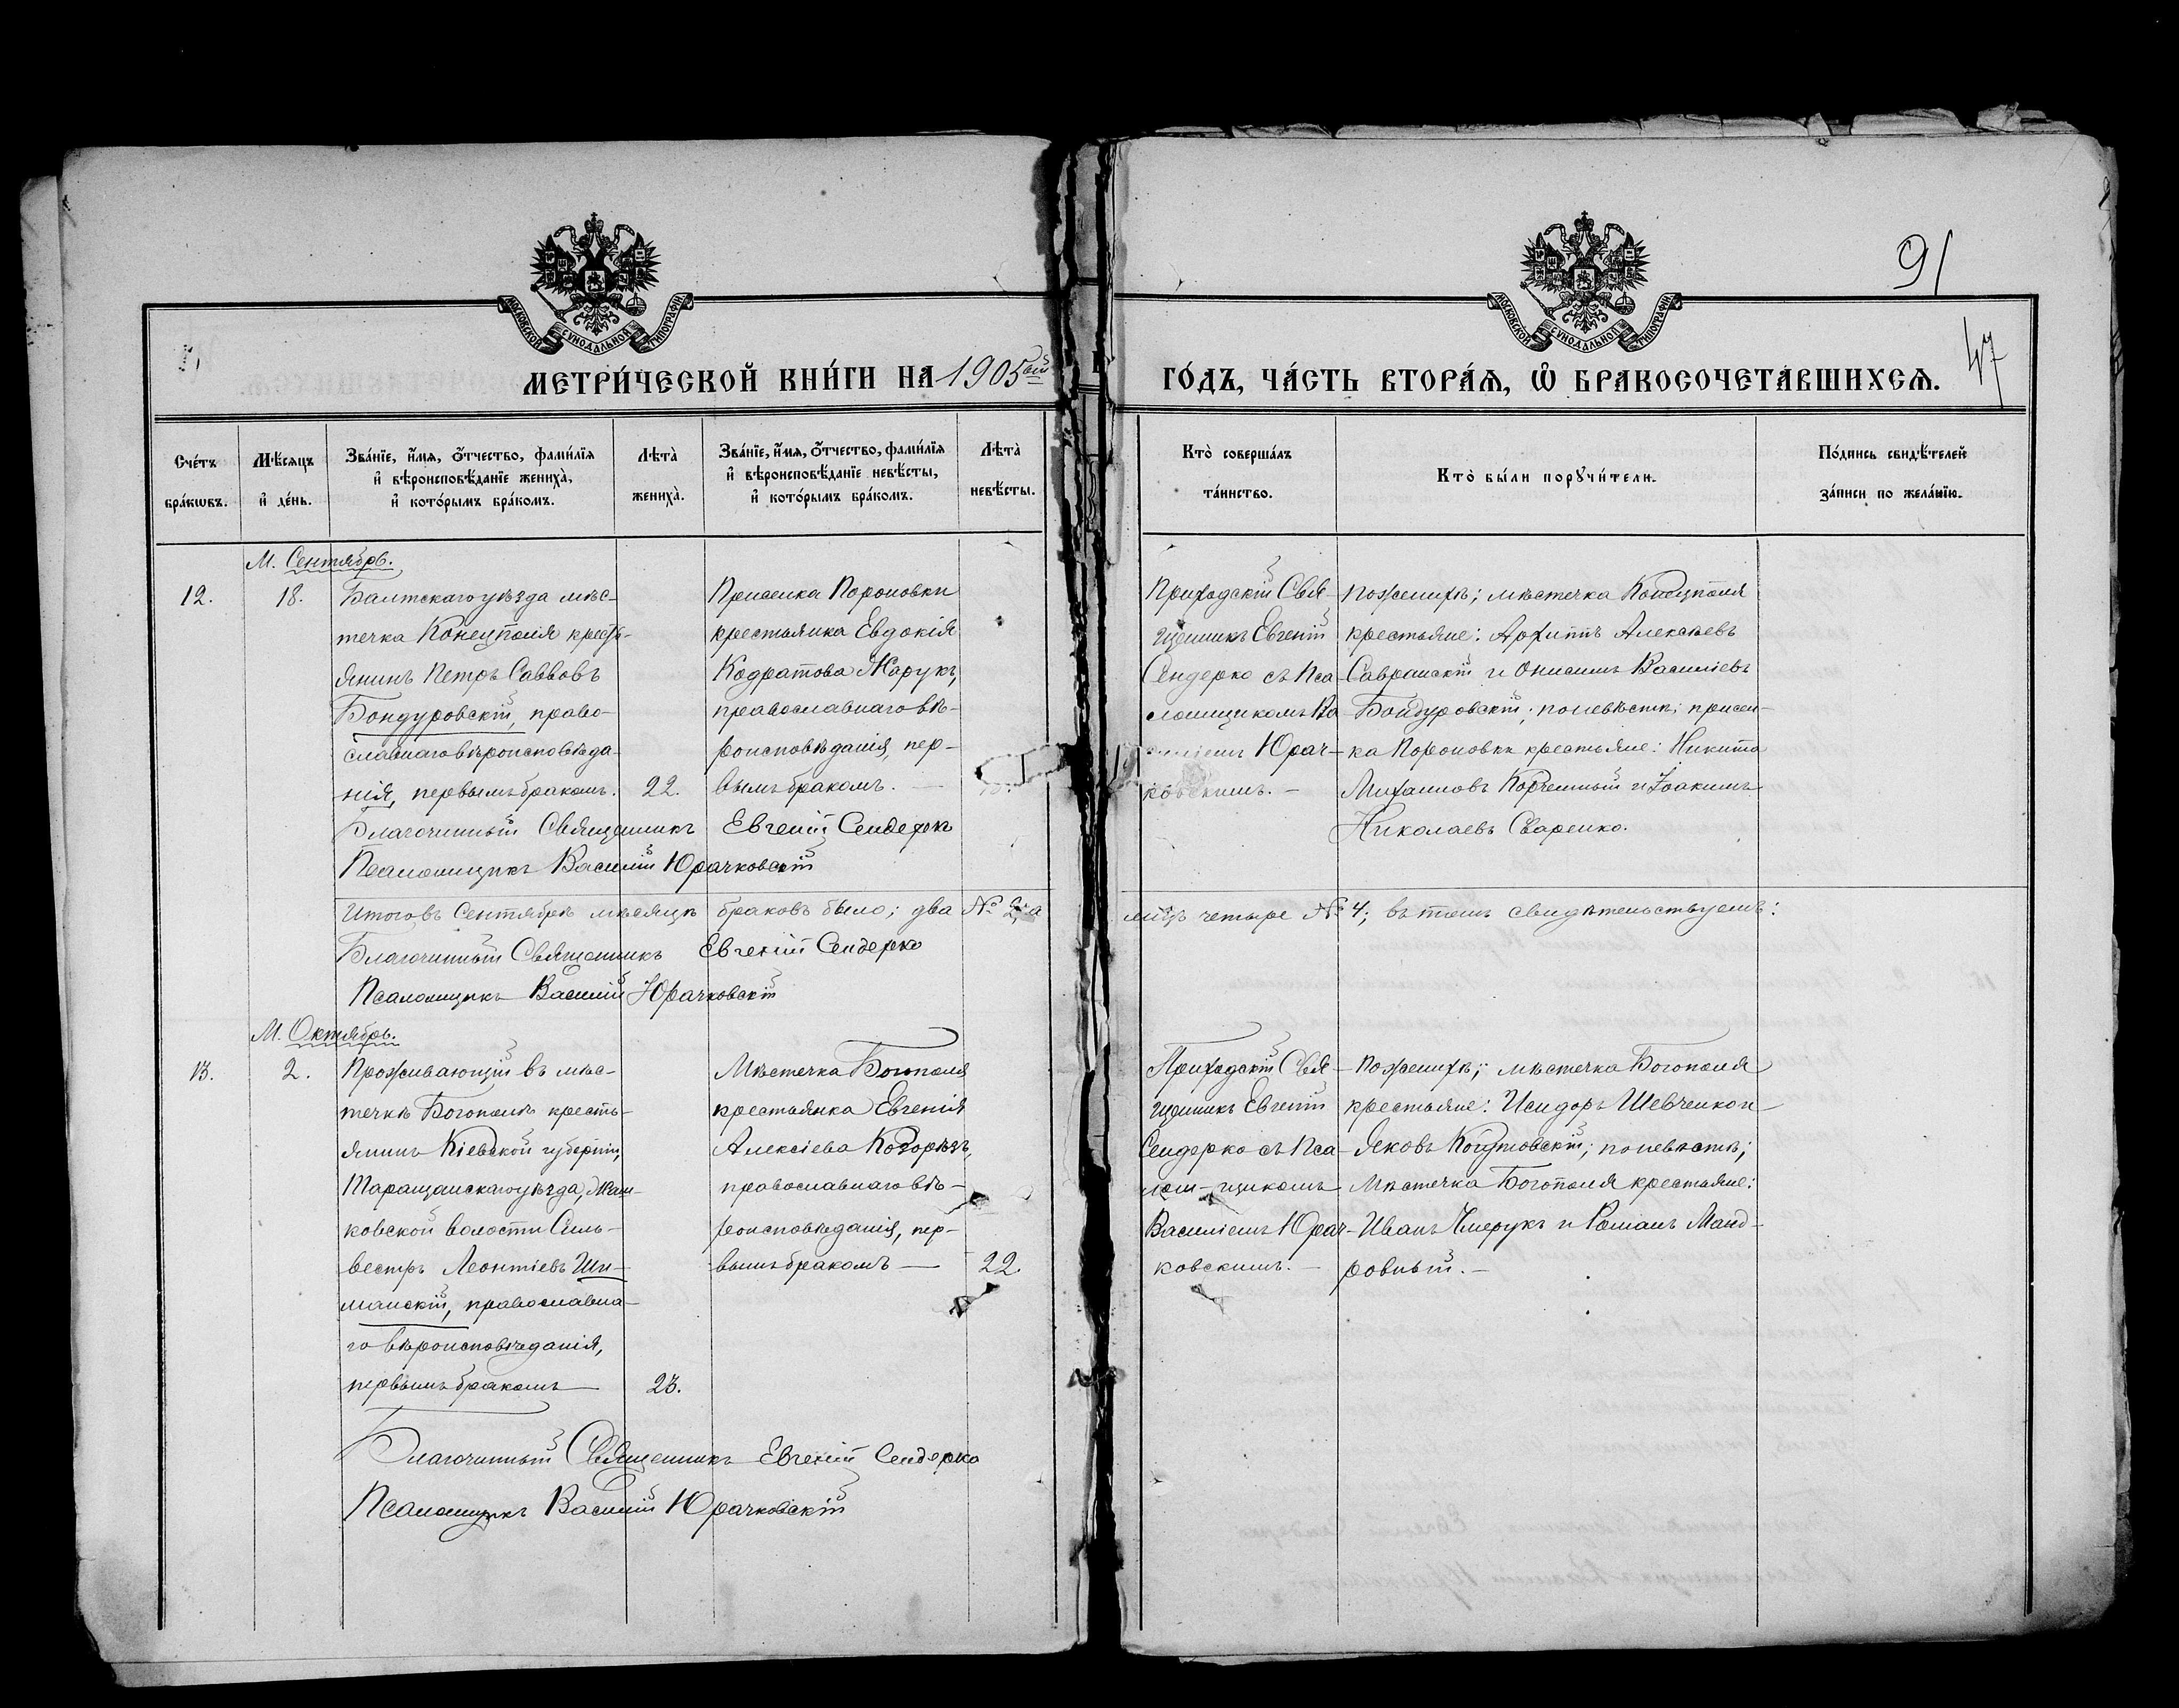 91
47
МОСКОВСКОЙ СѴНОДАЛЬНОЙ ТИПОГРАФІИ
МОСКОВСКОЙ СѴНОДАЛЬНОЙ ТИПОГРАФІИ
МЕТРИ́ЧЕСКОЙ КНИ́ГИ НА 1905ый ГО́ДЪ, ЧА́СТЬ ВТОРА́Ѧ, Ѽ БРАКОСОЧЕТА́ВШИХСѦ.
Сче́тъ бра́кѡвъ.
Мѣ́сяцъ и҆ де́нь.
Зва́нїе, и҆́мя, ѻ҆́тчество, фами́лїя и҆ вѣроисповѣ́данїе жениха̀, и҆ кото́рымъ бра́комъ.
Лѣта̀ жениха̀.
Зва́нїе, и҆́мя, ѻ҆́тчество, фами́лїя и҆ вѣроисповѣ́данїе невѣ́сты, и҆ кото́рымъ бра́комъ.
Лѣта̀ невѣ́сты.
Кто̀ соверша́лъ та́инство.
Кто̀ бы́ли порꙋчи́тели.
По́дпись свидѣ́телей за́писи по жела́нїю.
М. Сентябрь.
12.
18.
Балтскаго уѣзда мѣс-
течка Конецполя кресть-
янинъ Петръ Саввовъ
Бондуровскій, право-
славнаго вѣроисповѣда-
нія, первымъ бракомъ.
22.
Присенка Пороновки
крестьянка Евдокія
Кодратова Марукъ,
православнаго вѣ-
роисповѣданія, пер-
вымъ бракомъ. —
Приходскій Свя-
щенникъ Евгеній
Сендерко съ Пса-
ломщикомъ Ва
Юрач-
ковскимъ. —
По женихѣ; мѣстечка Конецполя
крестьяне: Архиппъ Алексѣевъ
Савранскій и Онисимъ Василіевъ
Бондуровскій; по невѣстѣ; присен-
ка Пороновки крестьяне: Никита
Михаиловъ Корчемный и Іоакимъ
Николаевъ Сваренко.
Благочинный Священникъ Евгеній Сендерко
Псаломщикъ Василій Юрачковскій
Итого въ Сентябрѣ мѣсяцѣ браковъ было; два № 2, а лицъ четыре № 4; въ томъ свидѣтельствуемъ:
Благочинный Священникъ Евгеній Сендерко
Псаломщикъ Василій Юрачковскій
М. Октябрь.
13.
2.
Проживающій въ мѣс-
течкѣ Богополѣ кресть-
янинъ Кіевской губерніи,
Таращанскаго уѣзда, Жаш-
ковской волости Силь-
вестръ Леонтіевъ Ши-
манскій, православна-
го вѣроисповѣданія,
первымъ бракомъ —
23.
Мѣстечка Богополя
крестьянка Евгенія
Алексіева Козорѣзъ,
православнаго вѣ-
роисповѣданія, пер-
вымъ бракомъ —
22.
Приходскій Свя-
щенникъ Евгеній
Сендерко съ Пса-
лом-щикомъ
Василіемъ Юрач-
ковскимъ. —
По женихѣ; мѣстечка Богополя
крестьяне: Исидоръ Шевченко и
Яковъ Койтовскій; по невѣстѣ;
Мѣстечка Богополя крестьяне:
Иванъ Чмерукъ и Романъ Манд-
ровный. —
Благочинный Священникъ Евгеній Сендерко
Псаломщикъ Василій Юрачковскій